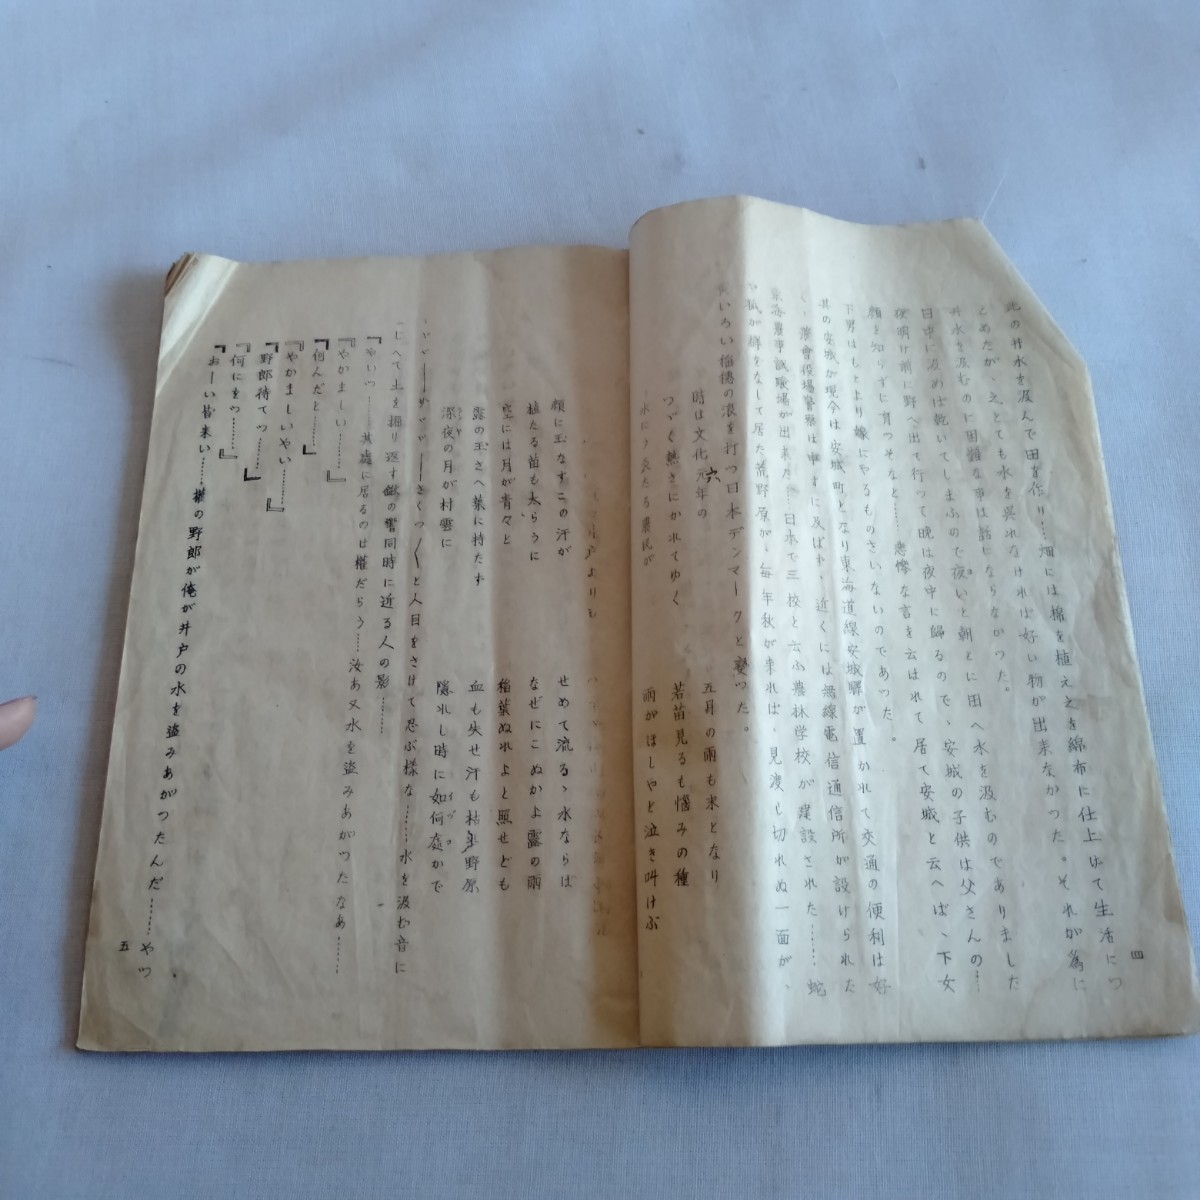 此の井水を汲んで田を作り…畑には棉を植え之を綿布に仕上げて生活につ
とめたが、之とても水を呉れなければ好い物が出来なかつた。それが為に
井水を汲むのに困難な事は話にならなかつた。
日中に汲めば乾いてしまふので夜いと朝とに田へ水を汲むのでありました
夜明け前に野へ出て行つて晩は夜中に歸るので、安城の子供は父さんの…
顔を知らずに育つそなと……悪惨な言を云はれて居て安城と云へば、下女
下男はもとより嫁にやるものさいないのであつた。
其の安城が現今は安城町となり東海道線安城驛が置かれて交通の便利は好
く、農會役場警察は申すに及ばず、近くには無線電信通信所が設けられた
東海農事試験場が出来た……日本で三校と云ふ農林学校が建設された……蛇
や狐が群をなして居た荒野原が、毎年秋が来れば、見渡し切れぬ一面が、
黄いろい稲穂の浪を打つ日本デンマークと変つた。
六
時は文化元年の 五月の雨も末となり
つゞく熱さにかれてゆく 若苗見るも惱みの種
水にうゑたる農民が 雨がほしやと泣き叫けぶ
四
井戸よりも
顔に玉なすこの汗が せめて流るゝ水ならば
植たる苗も太らうに なぜにこぬかよ露の雨
空には月が青々と 稲葉ぬれよと照せども
露の玉さへ葉に持たず 血も失せ汗も枯野原
深夜の月が村雲に 隠れし時に如何處かで
さくつ〱と人目をさけて忍ぶ様な……水を汲む音に
じへて土を掘り返す鍬の響同時に近る人の影……
『やいつ……其處に居るのは權だらう……汝あ又水を盗みあがつたなあ……
『やかましい……』
『何んだと……』
『やかましいやい……』
『野郎待てつ……』
『何にをつ……』
『おーい皆来い……權の野郎が俺が井戸の水を盗みあがつたんだ……やつ
五